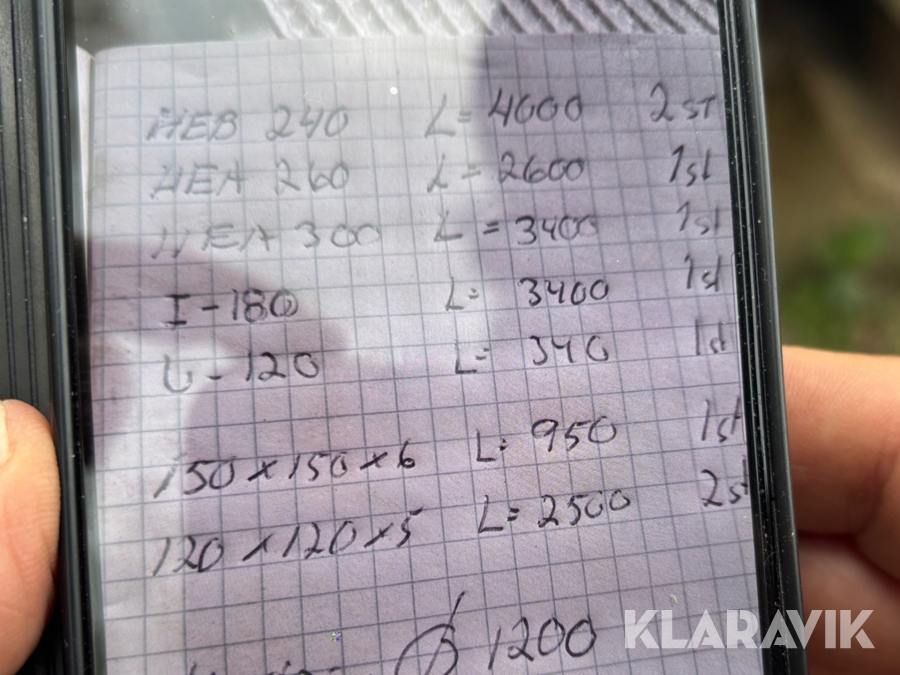 HEB 240 L= 4000 2 ST
HEA 260 L= 2600 1 st
HEA 300 L= 3400 1 st
I-180 L= 3400 1 st
U-120 L= 340 1 st
150 x 150 x 6 L= 950 1 st
120 x 120 x 5 L= 2500 2 st
1200
KLARAVIK